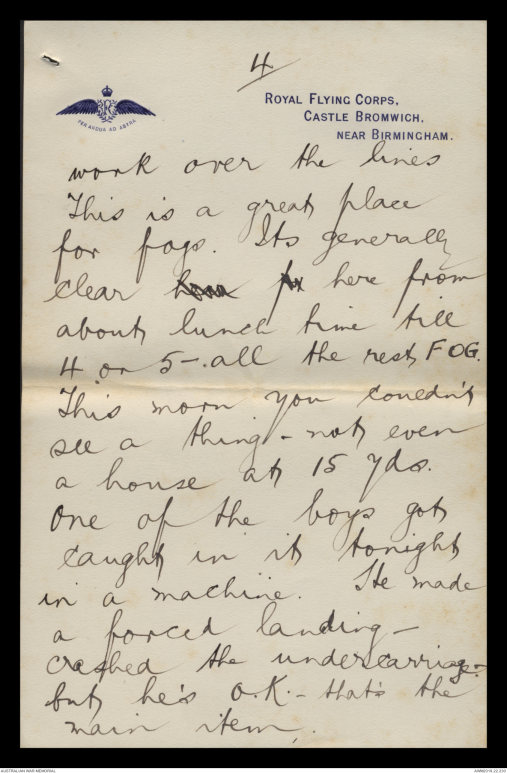 4
PER ARDUA AD ASTRA
ROYAL FLYING CORPS,
CASTLE BROMWICH,
NEAR BIRMINGHAM.
work over the lines
This is a great place
for fogs. Its generally
clear here from
about lunch time till
4 or 5 - all the rest FOG.
This morn you couldn't
see a thing - not even
a house at 15 yds.
One of the boys got
caught in it tonight
in a machine. He made
a forced landing -
crashed the undercarriage -
but he's O.K. - that's the
main item.
AUSTRALIAN WAR MEMORIAL